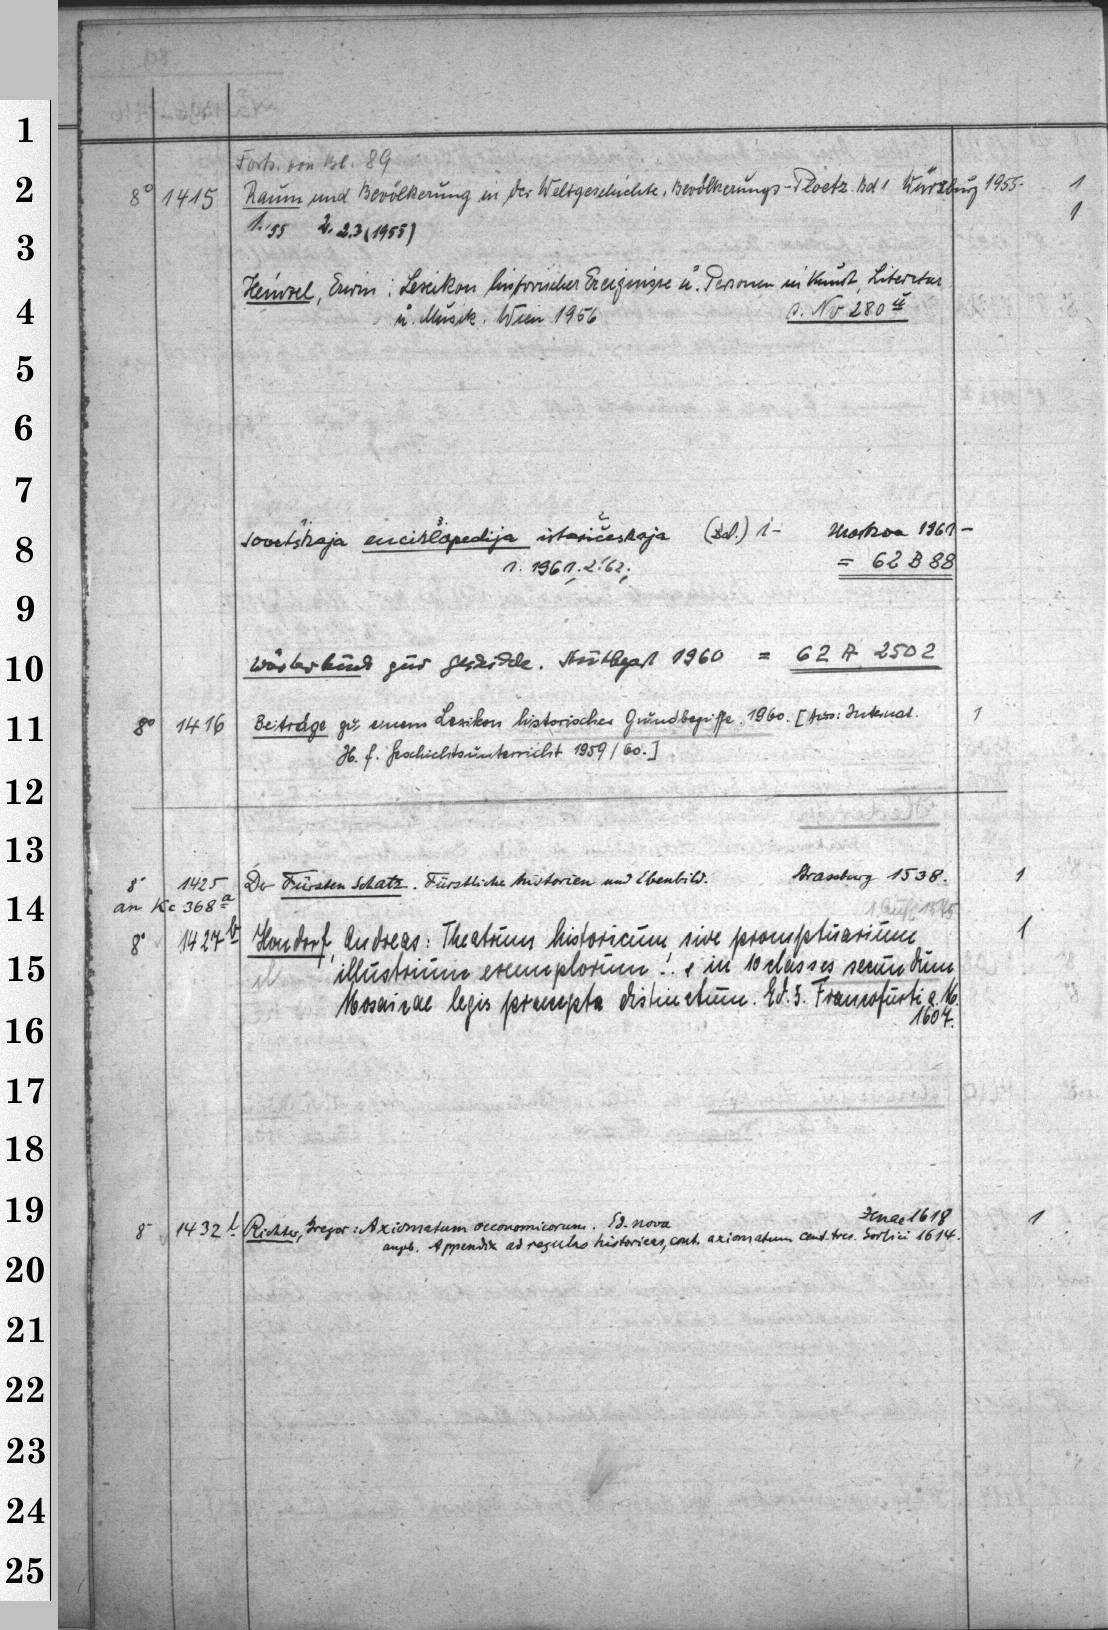 1
Forts. von Bl. 89
2 8° 1415 Raum und Bevölkerung in der Weltgeschichte. Bevölkerungs-Ploetz. Bd 1 Würzburg 1955- 1
1. 55 2. 2.3 (1955) 1
3
Heinzel, Erwin: Lexikon historischer Ereignisse u. Personen in Kunst, Literatur
4 u. Musik. Wien 1956 s. No 280
5
6
7
sovetskaja enciklopedija istoričeskaja (Bd.) 1- Moskva 1961-
8 1. 1961, 2. '62, = 62 B 88
9
10 Wörterbuch zur Geschichte. Stuttgart 1960 = 62 A 2502
11 8° 1416 Beiträge zu einem Lexikon historischer Grundbegriffe. 1960. [Aus: Internat. 1
H. f. Geschichtsunterricht 1959/60.]
12
13
8° 1425 Der Fürsten Schatz. Fürstliche historien und Ebenbild. Strassburg 1538. 1
14 an Kc 368 a
8° 1427 b Hondorf, Andreas: Theatrum historicum sive promptuarium 1
15 illustrium exemplorum ... in 10 classes secundum
Mosaicae legis praecepta distinctum. Ed. 5. Francofurti a. M.
16 1607.
17
18
19 8° 1432 l Richter, Gregor: Axiomatum oeconomicorum. Ed. nova Jenae 1618 1
angeb. Appendix ad regulas historicas, cont. axiomatum cent. tres. Gorlici 1614.
20
21
22
23
24
25